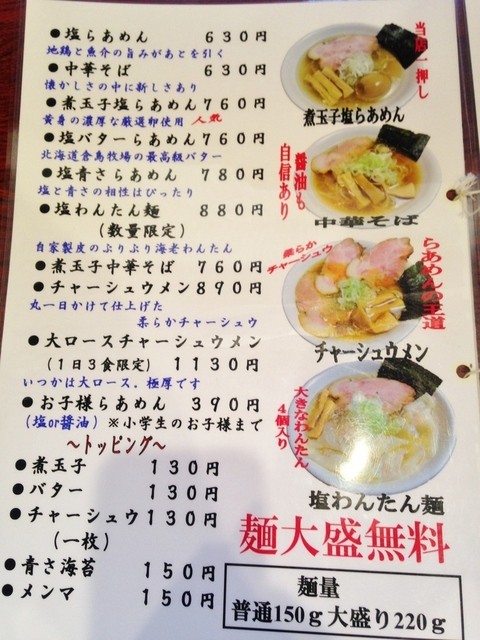 ●塩らあめん 630円
地鶏と魚介の旨みがあとを引く
●中華そば 630円
懐かしさの中に新しさあり
●煮玉子塩らあめん 760円
黄身の濃厚な厳選卵使用 人気
●塩バターらあめん 760円
北海道倉島牧場の最高級バター
●塩青さらあめん 780円
塩と青さの相性はぴったり
●塩わんたん麺 880円
(数量限定)
自家製皮のぷりぷり海老わんたん
●煮玉子中華そば 760円
●チャーシュウメン 890円
丸一日かけて仕上げた
柔らかチャーシュウ
●大ロースチャーシュウメン
(1日3食限定) 1130円
いつかは大ロース.極厚です
●お子様らあめん 390円
(塩or醤油) ※小学生のお子様まで
～トッピング～
●煮玉子 130円
●バター 130円
●チャーシュウ 130円
(一枚)
●青さ海苔 150円
●メンマ 150円
当店一押し
煮玉子塩らあめん
醤油も
自信あり
中華そば
柔らか
チャーシュウ
らあめんの王道
チャーシュウメン
大きなわんたん
4個入り
塩わんたん麺
麺大盛無料
麺量
普通150g 大盛り220g